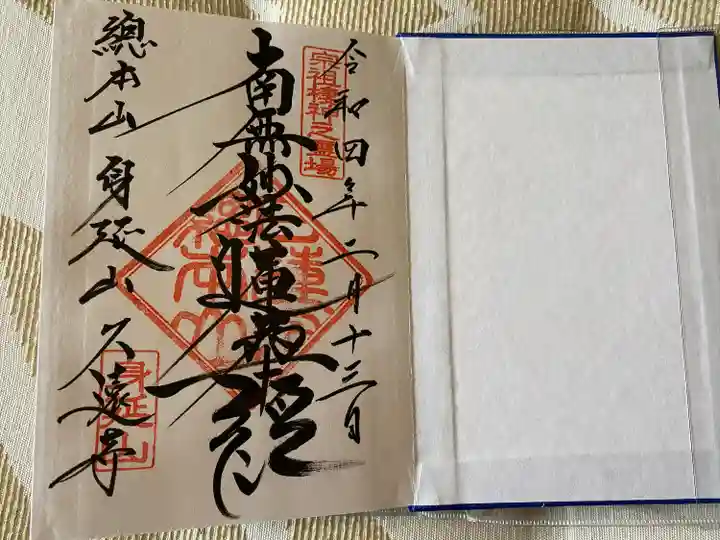 宗祖棲神之霊場
令和四年二月十三日
南無妙法蓮華経
總本山 身延山 久遠寺
身延山